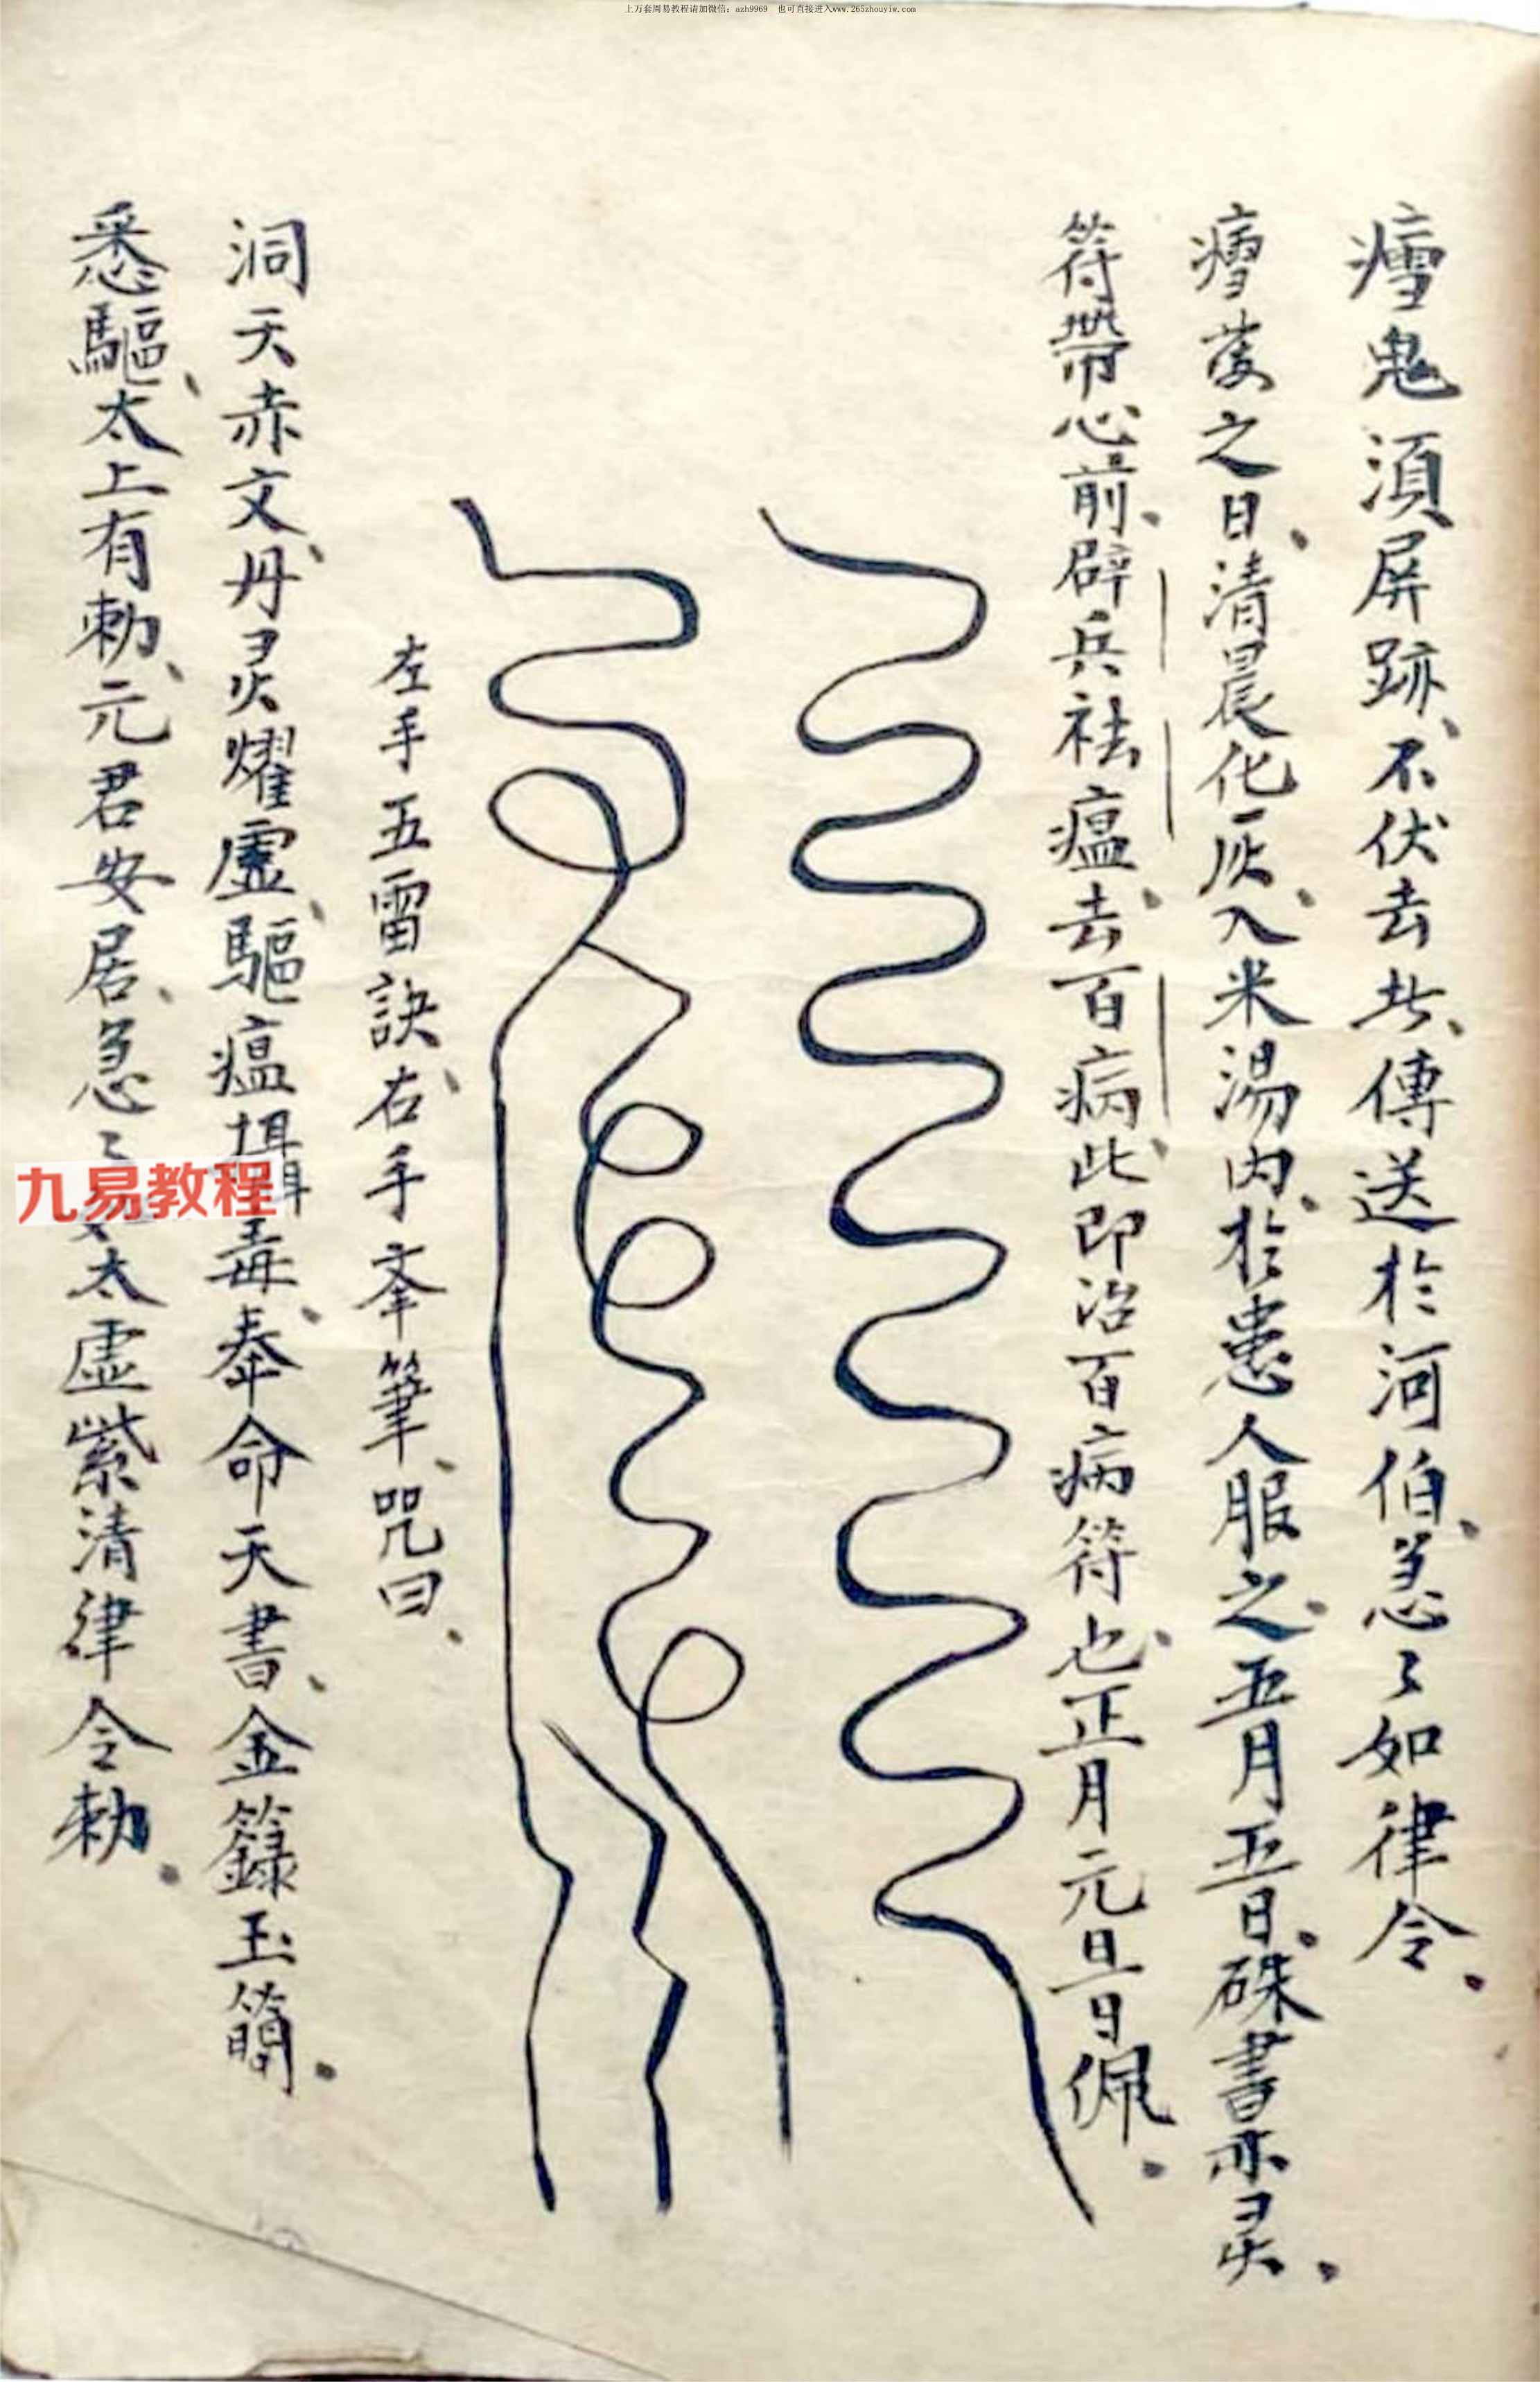 上万套周易教程请加微信：azh9969　也可直接进入www.265zhouyiw.com
瘧鬼須屏跡、不伏去此、傳送於河伯、急〻如律令、
瘧發之日、清晨化灰、入米湯內、於患人服之、五月五日、硃書亦灵、
符帶心前、辟兵祛瘟、去百病、此即治百病符也、正月元旦日佩、
左手五雷訣、右手拿筆、咒曰、
洞天赤文、丹灵耀虛、驅瘟攝毒、奉命天書、金籙玉簡、
悉驅、太上有勅、元君安居、急〻如太虛紫清律令勅、
九易教程